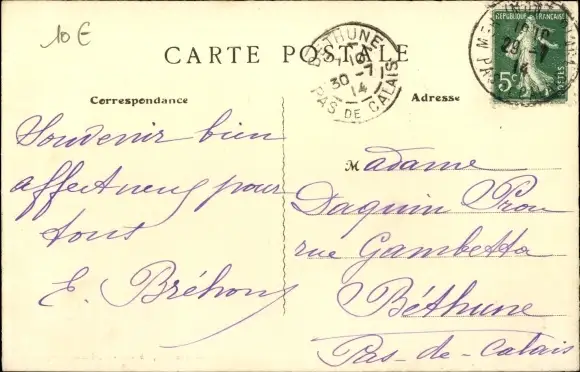 10 €
CARTE POSTALE
BETHUNE
30 -7
14
PAS DE CALAIS
REPUBLIQUE FRANÇAISE
5c
POSTES
29 -7
14
Correspondance
Adresse
Souvenir bien
affectueux pour
tous
E. Bréhon
Madame
Daquin Prou
rue Gambetta
Béthune
Pas-de-Calais